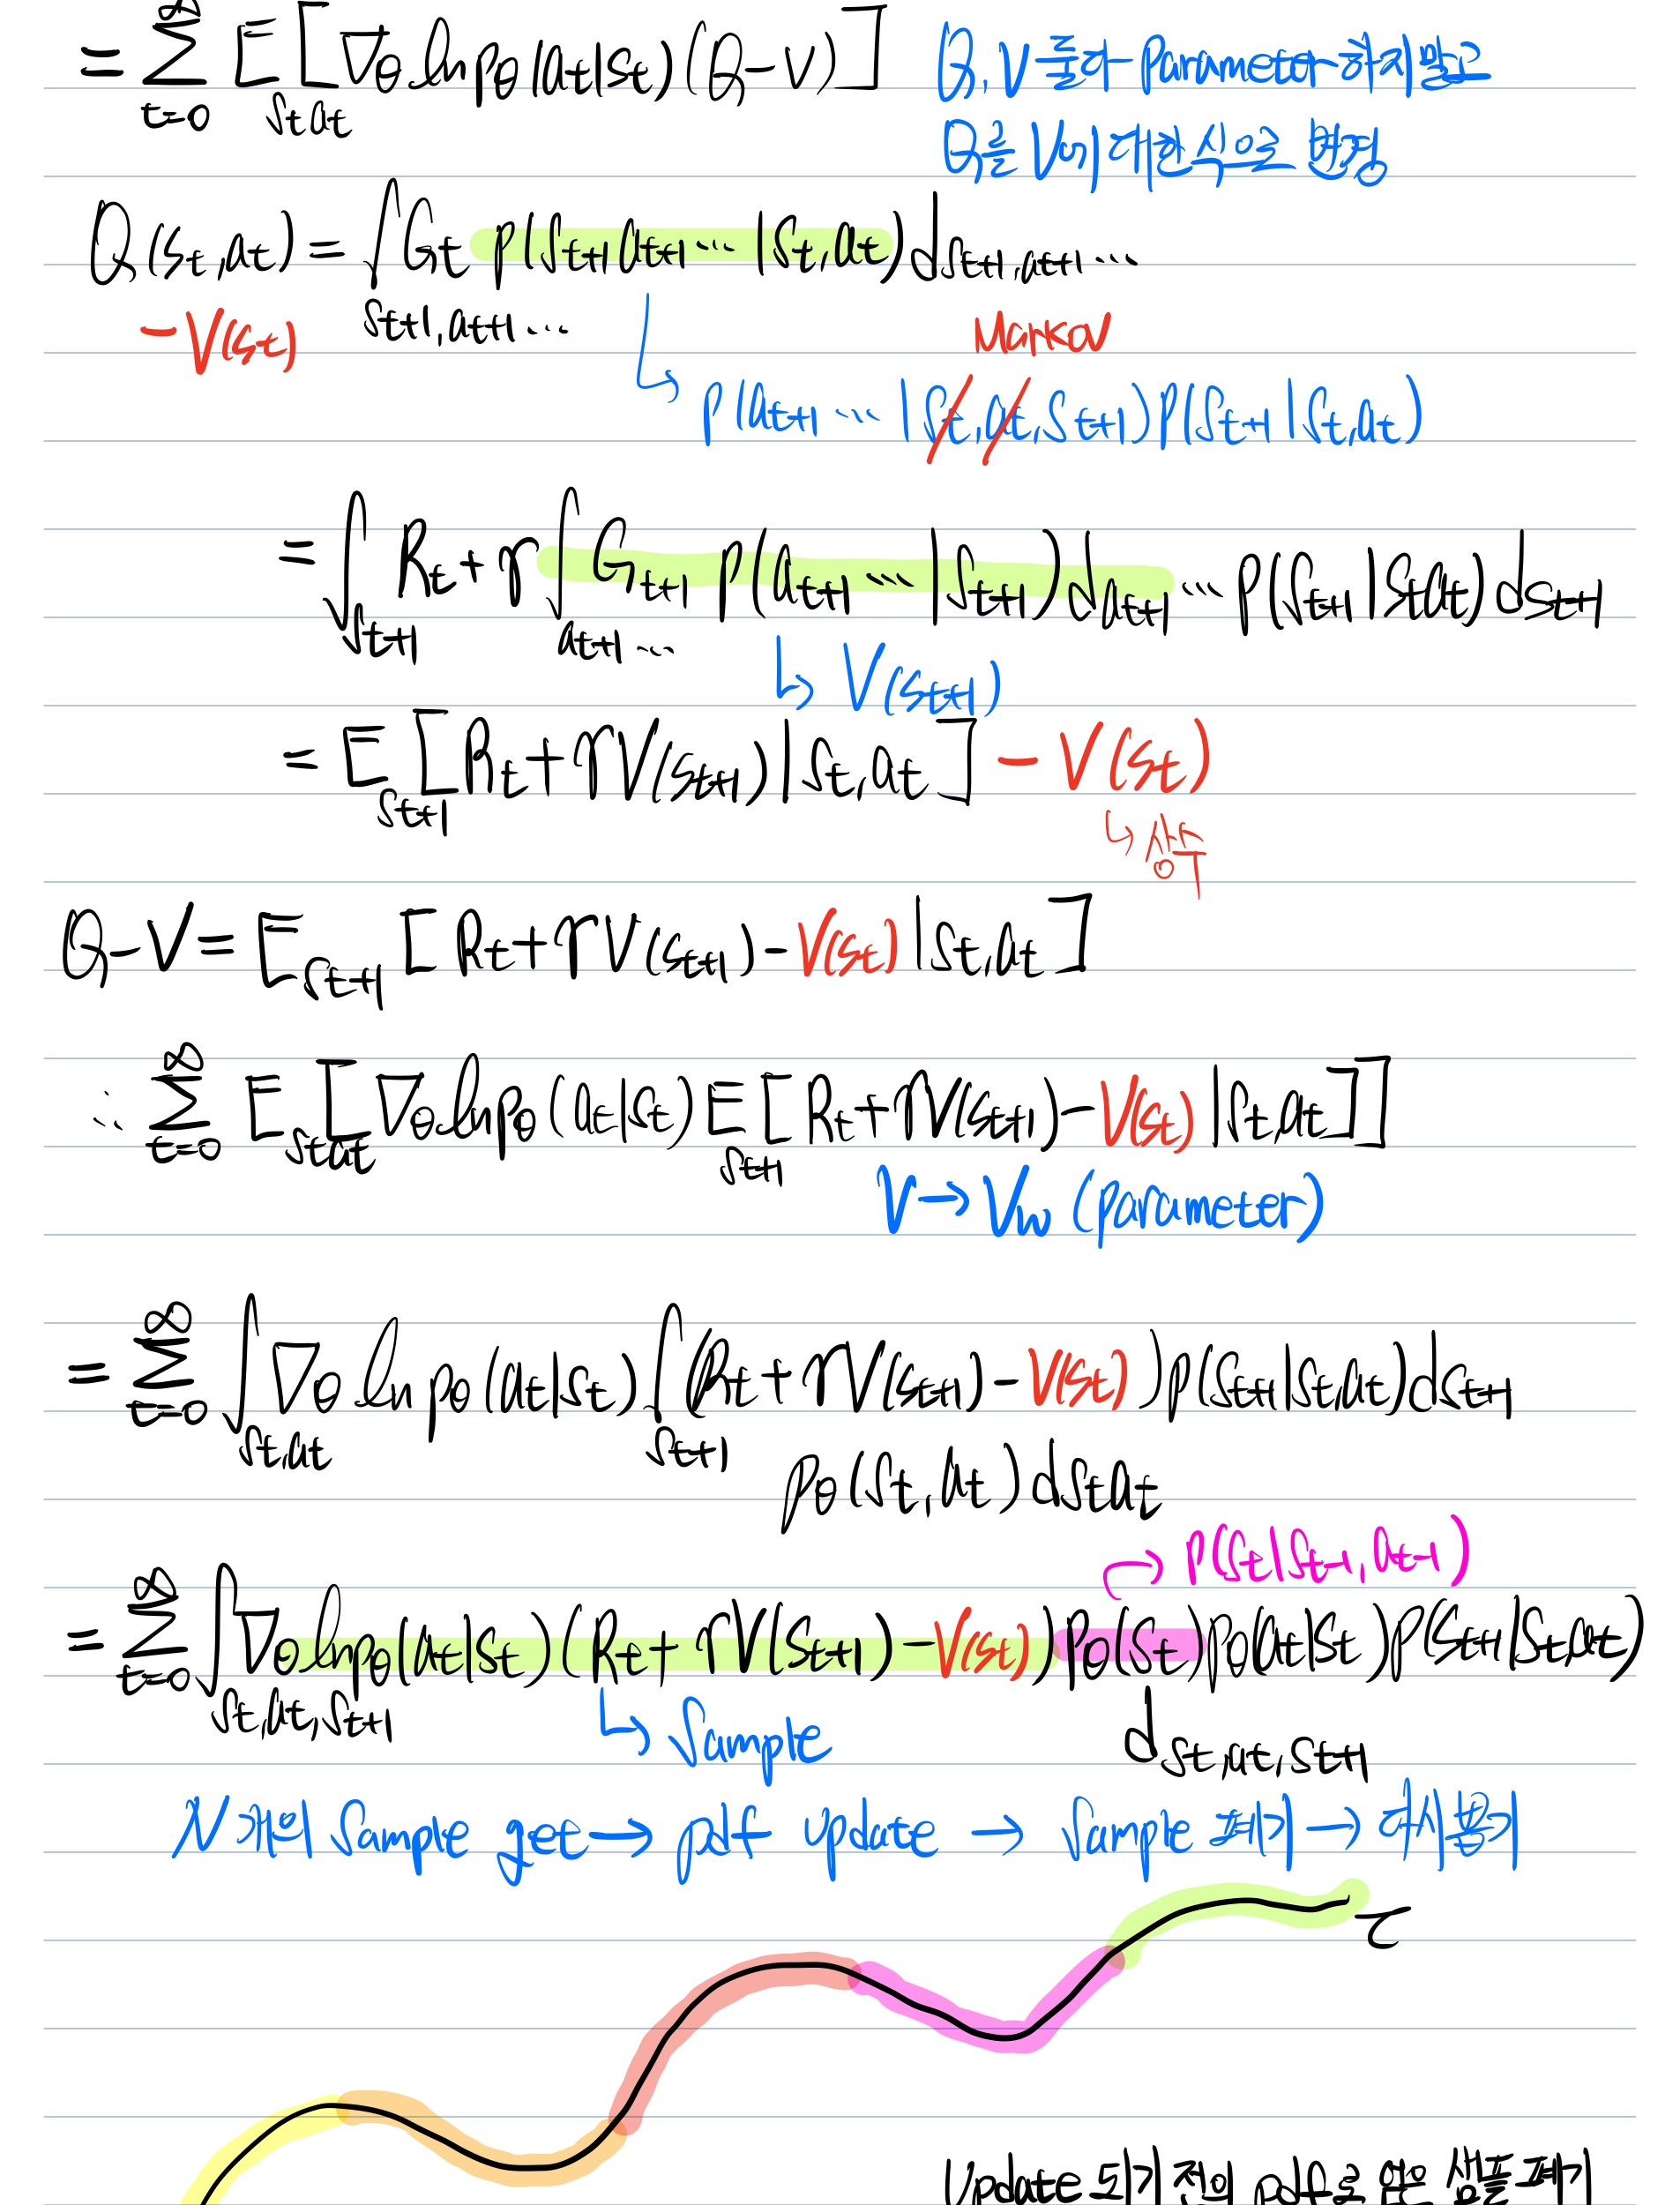 = ∞Σt=0 E st at [∇θ ln pθ(at|st)(Q-V)] Q, V 둘다 Parameter 하지말고
Q를 V에 대한 식으로 변경
Q(st, at) = ∫ st+1, at+1... Gt p(st+1 at+1 ... | st, at) d st+1, at+1 ...
- V(st)
Markov
p(at+1 ... | st, at, st+1) p(st+1 | st, at)
= ∫ st+1 Rt + r ∫ at+1 ... Gt+1 p(at+1 ... | st+1) d at+1 ... p(st+1 | st at) d st+1
↳ V(st+1)
= E st+1 [Rt + rV(st+1) | st, at] - V(st)
↳ 상수
Q-V = E st+1 [Rt + rV(st+1) - V(st) | st, at]
∴ ∞Σt=0 E st at [∇θ ln pθ(at|st) E st+1 [Rt + rV(st+1) - V(st) | st, at]]
V → Vw (parameter)
= ∞Σt=0 ∫ st, at ∇θ ln pθ(at|st) ∫ st+1 (Rt + rV(st+1) - V(st)) p(st+1|st, at) dst+1
pθ(st, at) dst at
→ p(st|st-1, at-1)
= ∞Σt=0 ∫ st, at, st+1 ∇θ ln pθ(at|st)(Rt + rV(st+1) - V(st)) pθ(st) pθ(at|st) p(st+1|st, at)
↳ Sample d st, at, st+1
N개의 Sample get → pdf update → Sample 폐기 → 다시뽑기
τ
Update 되기 전의 pdf로 얻은 샘플 폐기